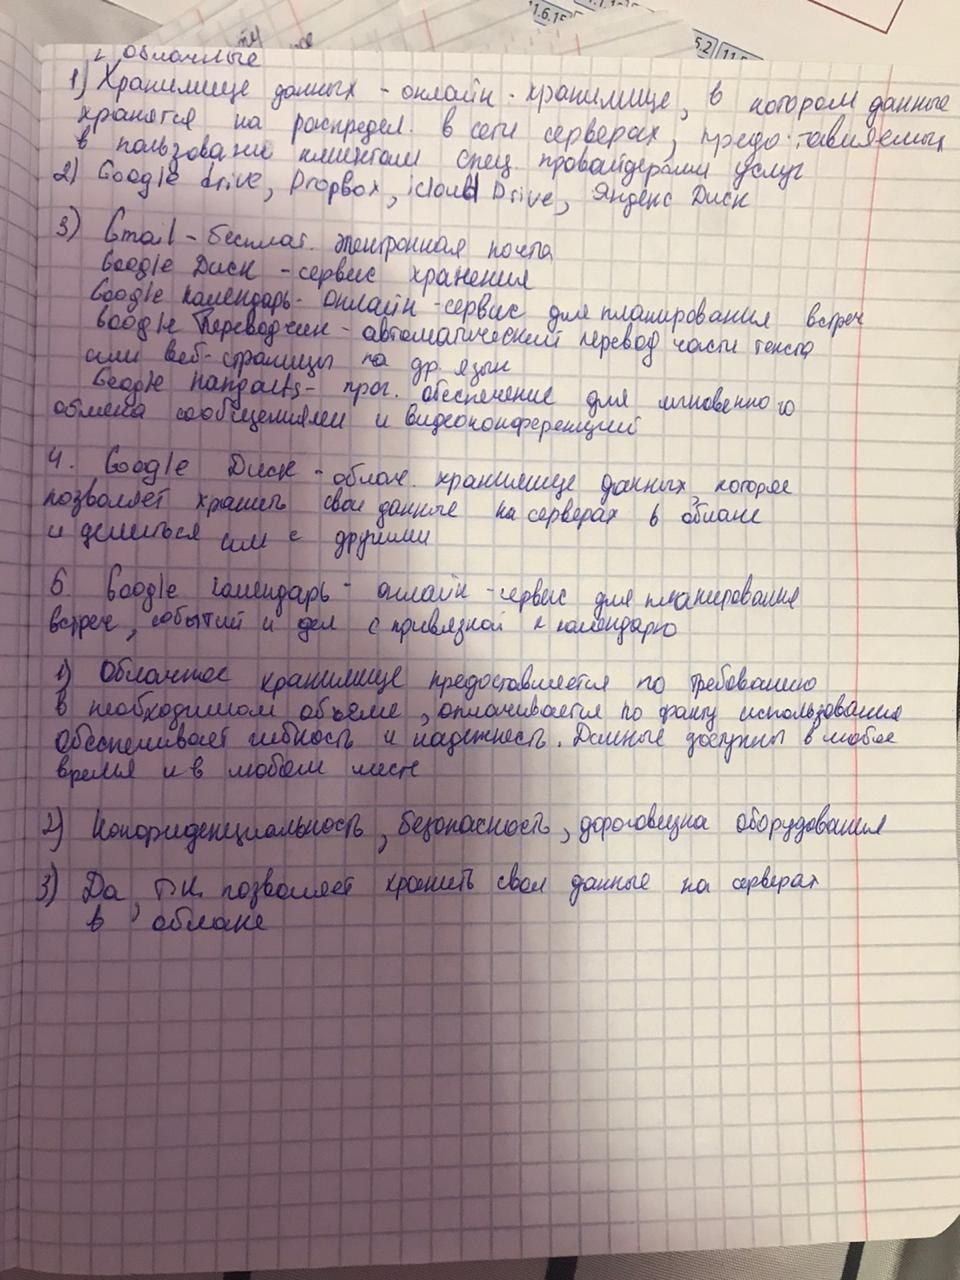 облачные
1) Хранилище данных - онлайн - хранилище, в котором данные
хранятся на распредел. в сети серверах, предоставляемых
в пользование клиентам спец. провайдерами услуг
2) Google drive, Dropbox, icloud Drive, Яндекс Диск
3) Gmail - бесплат. электронная почта
Google Диск - сервис хранения
Google календарь - онлайн - сервис для планирования встреч
Google Переводчик - автоматический перевод части текста
или веб-страницы на др. язык
Google hangouts - прог. обеспечение для мгновенного
обмена сообщениями и видеоконференций
4. Google Диск - облач. хранилище данных, которое
позволяет хранить свои данные на серверах в облаке
и делиться им с другими
6. Google календарь - онлайн - сервис для планирования
встреч, событий и дел с привязкой к календарю
1) Облачное хранилище предоставляется по требованию
в необходимом объеме, оплачивается по факту использования
Обеспечивает гибкость и надежность. Данные доступны в любое
время и в любом месте
2) Конфиденциальность, безопасность, дороговизна оборудования
3) Да, т.к. позволяет хранить свои данные на серверах
в облаке
11.6.15
5.2